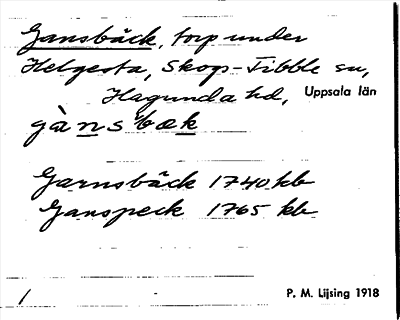 Gansbäck, torp under
Helgesta, Skogs-Tibble sn,
Hagunda hd, Uppsala län
gà̀nsbæk
Garnsbäck 1740 kb
Ganspeck 1765 kb
/ P. M. Lijsing 1918